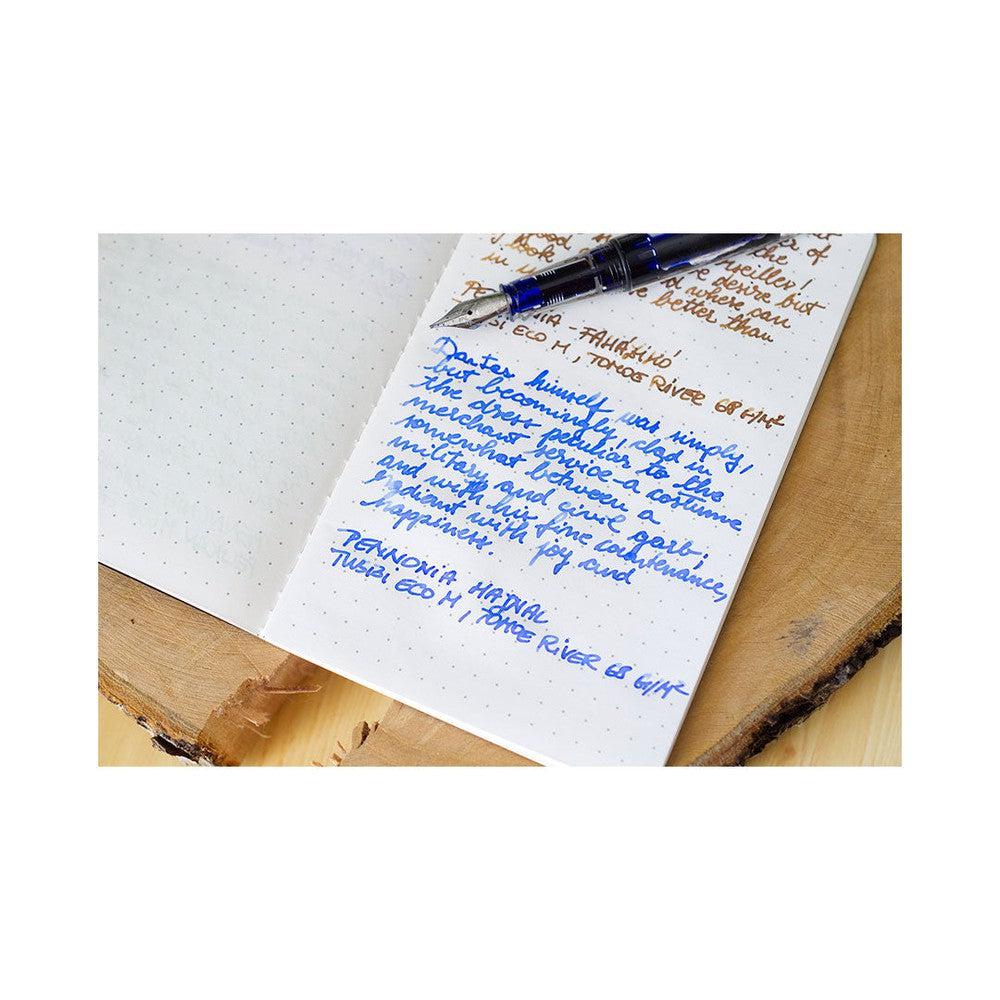 good the of
look
in desire but
where can
better than
ECO M, TOMOE RIVER 68 G/M²
Dantes himself was simply,
but becomingly, clad in
the dress peculiar to the
merchant service-a costume
somewhat between a
military and civil garb;
and with his fine countenance,
radiant with joy and
happiness.
PENNONIA HAJNAL
TWSBI ECO M, TOMOE RIVER 68 G/M²